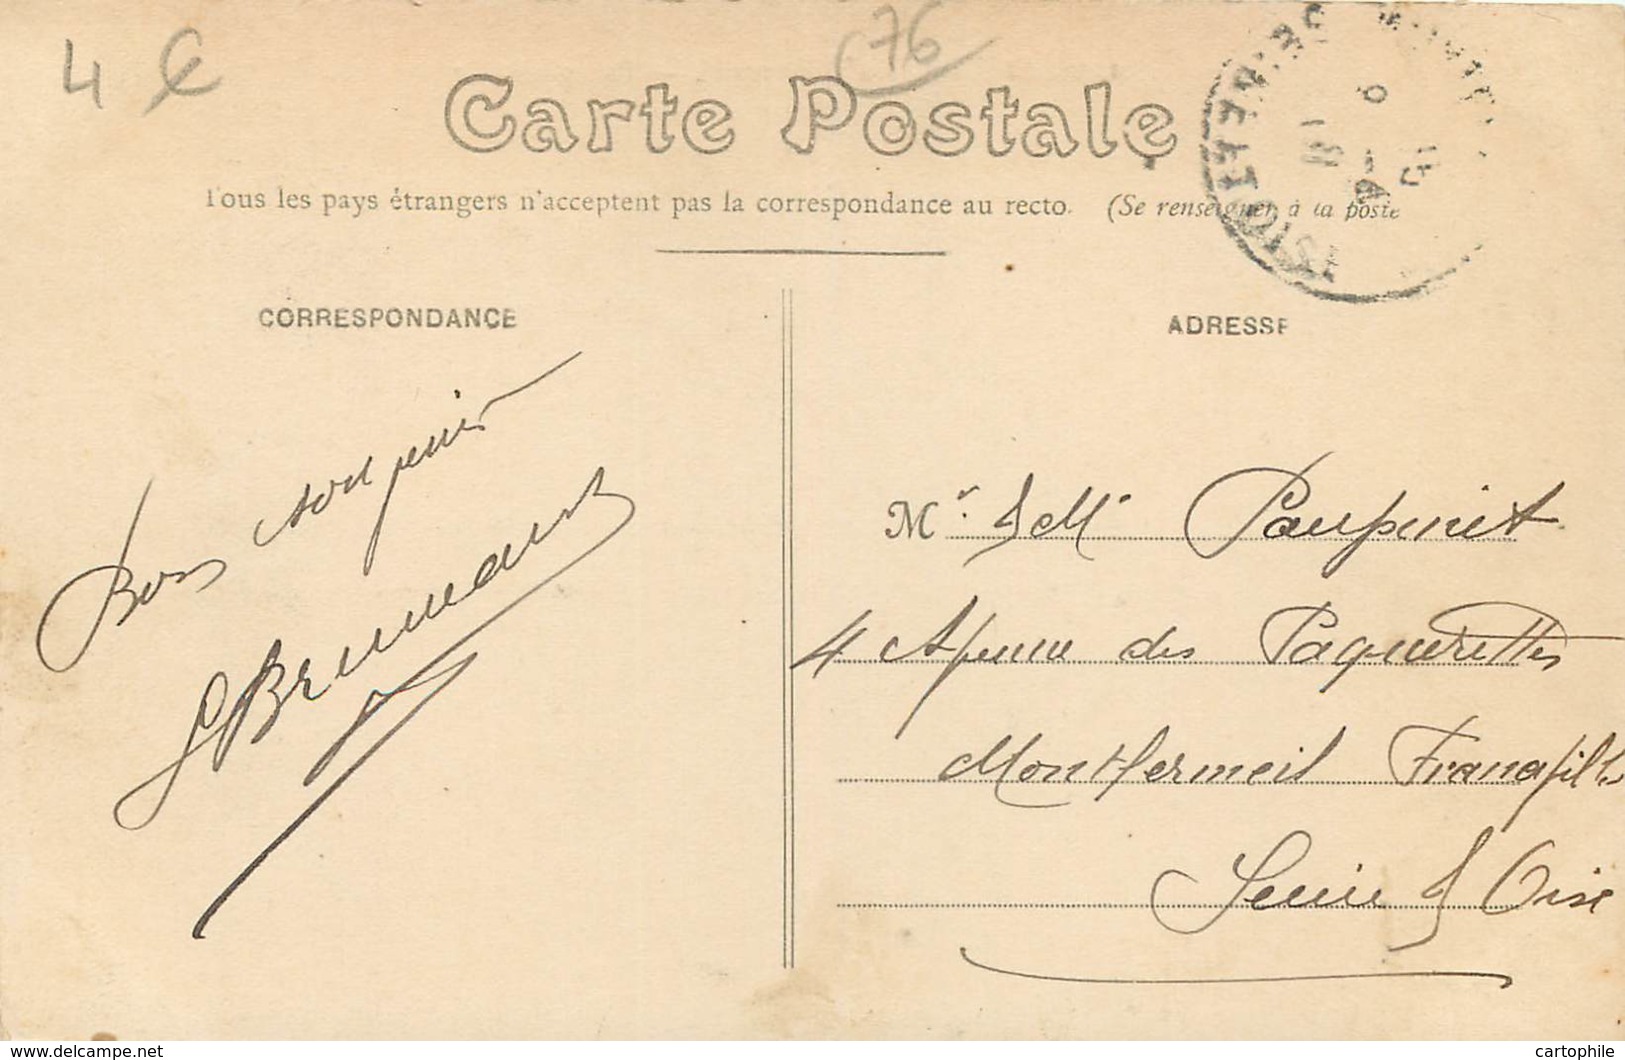 4 €
76
Carte Postale
Tous les pays étrangers n'acceptent pas la correspondance au recto. (Se renseigner à la poste
CORRESPONDANCE
ADRESSE
Bon souvenir
Mr. & Me Paupinet
4 Avenue des Paquerettes
Montfermeil Franceville
Seine & Oise
www.delcampe.net
cartophile